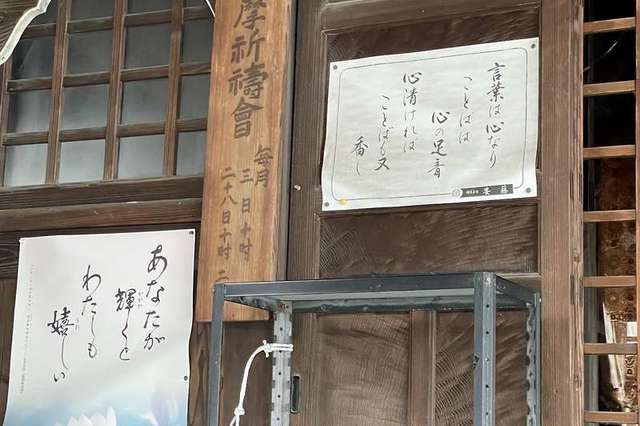 言葉は心なり
ことばは
心の足音
心清ければ
ことばも又
香し
摩祈禱會
毎月
三日十時
二十八日十時
あなたが
輝くと
わたしも
嬉しい